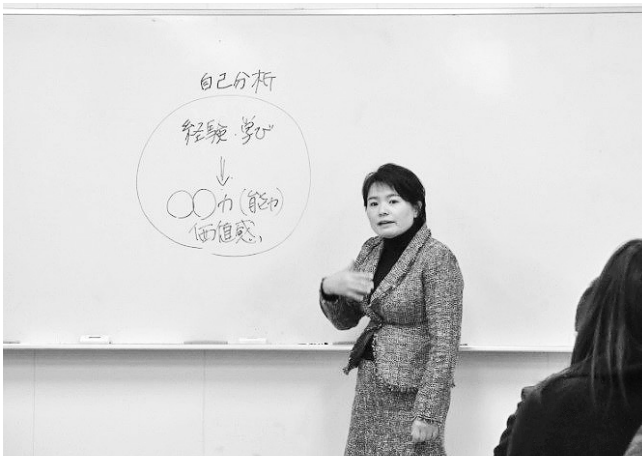 自己分析
経験・学び
↓
○○力(能力)
価値感、